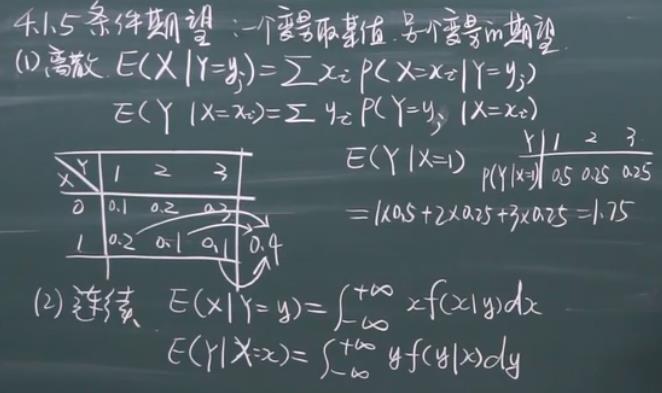 4.1.5 条件期望:一个变量取某值,另个变量的期望
(1) 离散. E(X|Y=y_j)=∑ x_i P(X=x_i|Y=y_j)
E(Y|X=x_i)=∑ y_i P(Y=y_j|X=x_i)
X\Y 1 2 3
0 0.1 0.2 0.3
1 0.2 0.1 0.1 0.4
E(Y|X=1)
Y 1 2 3
P(Y|X=1) 0.5 0.25 0.25
=1×0.5+2×0.25+3×0.25=1.75
(2) 连续 E(X|Y=y)=∫_{-∞}^{+∞} xf(x|y)dx
E(Y|X=x)=∫_{-∞}^{+∞} yf(y|x)dy